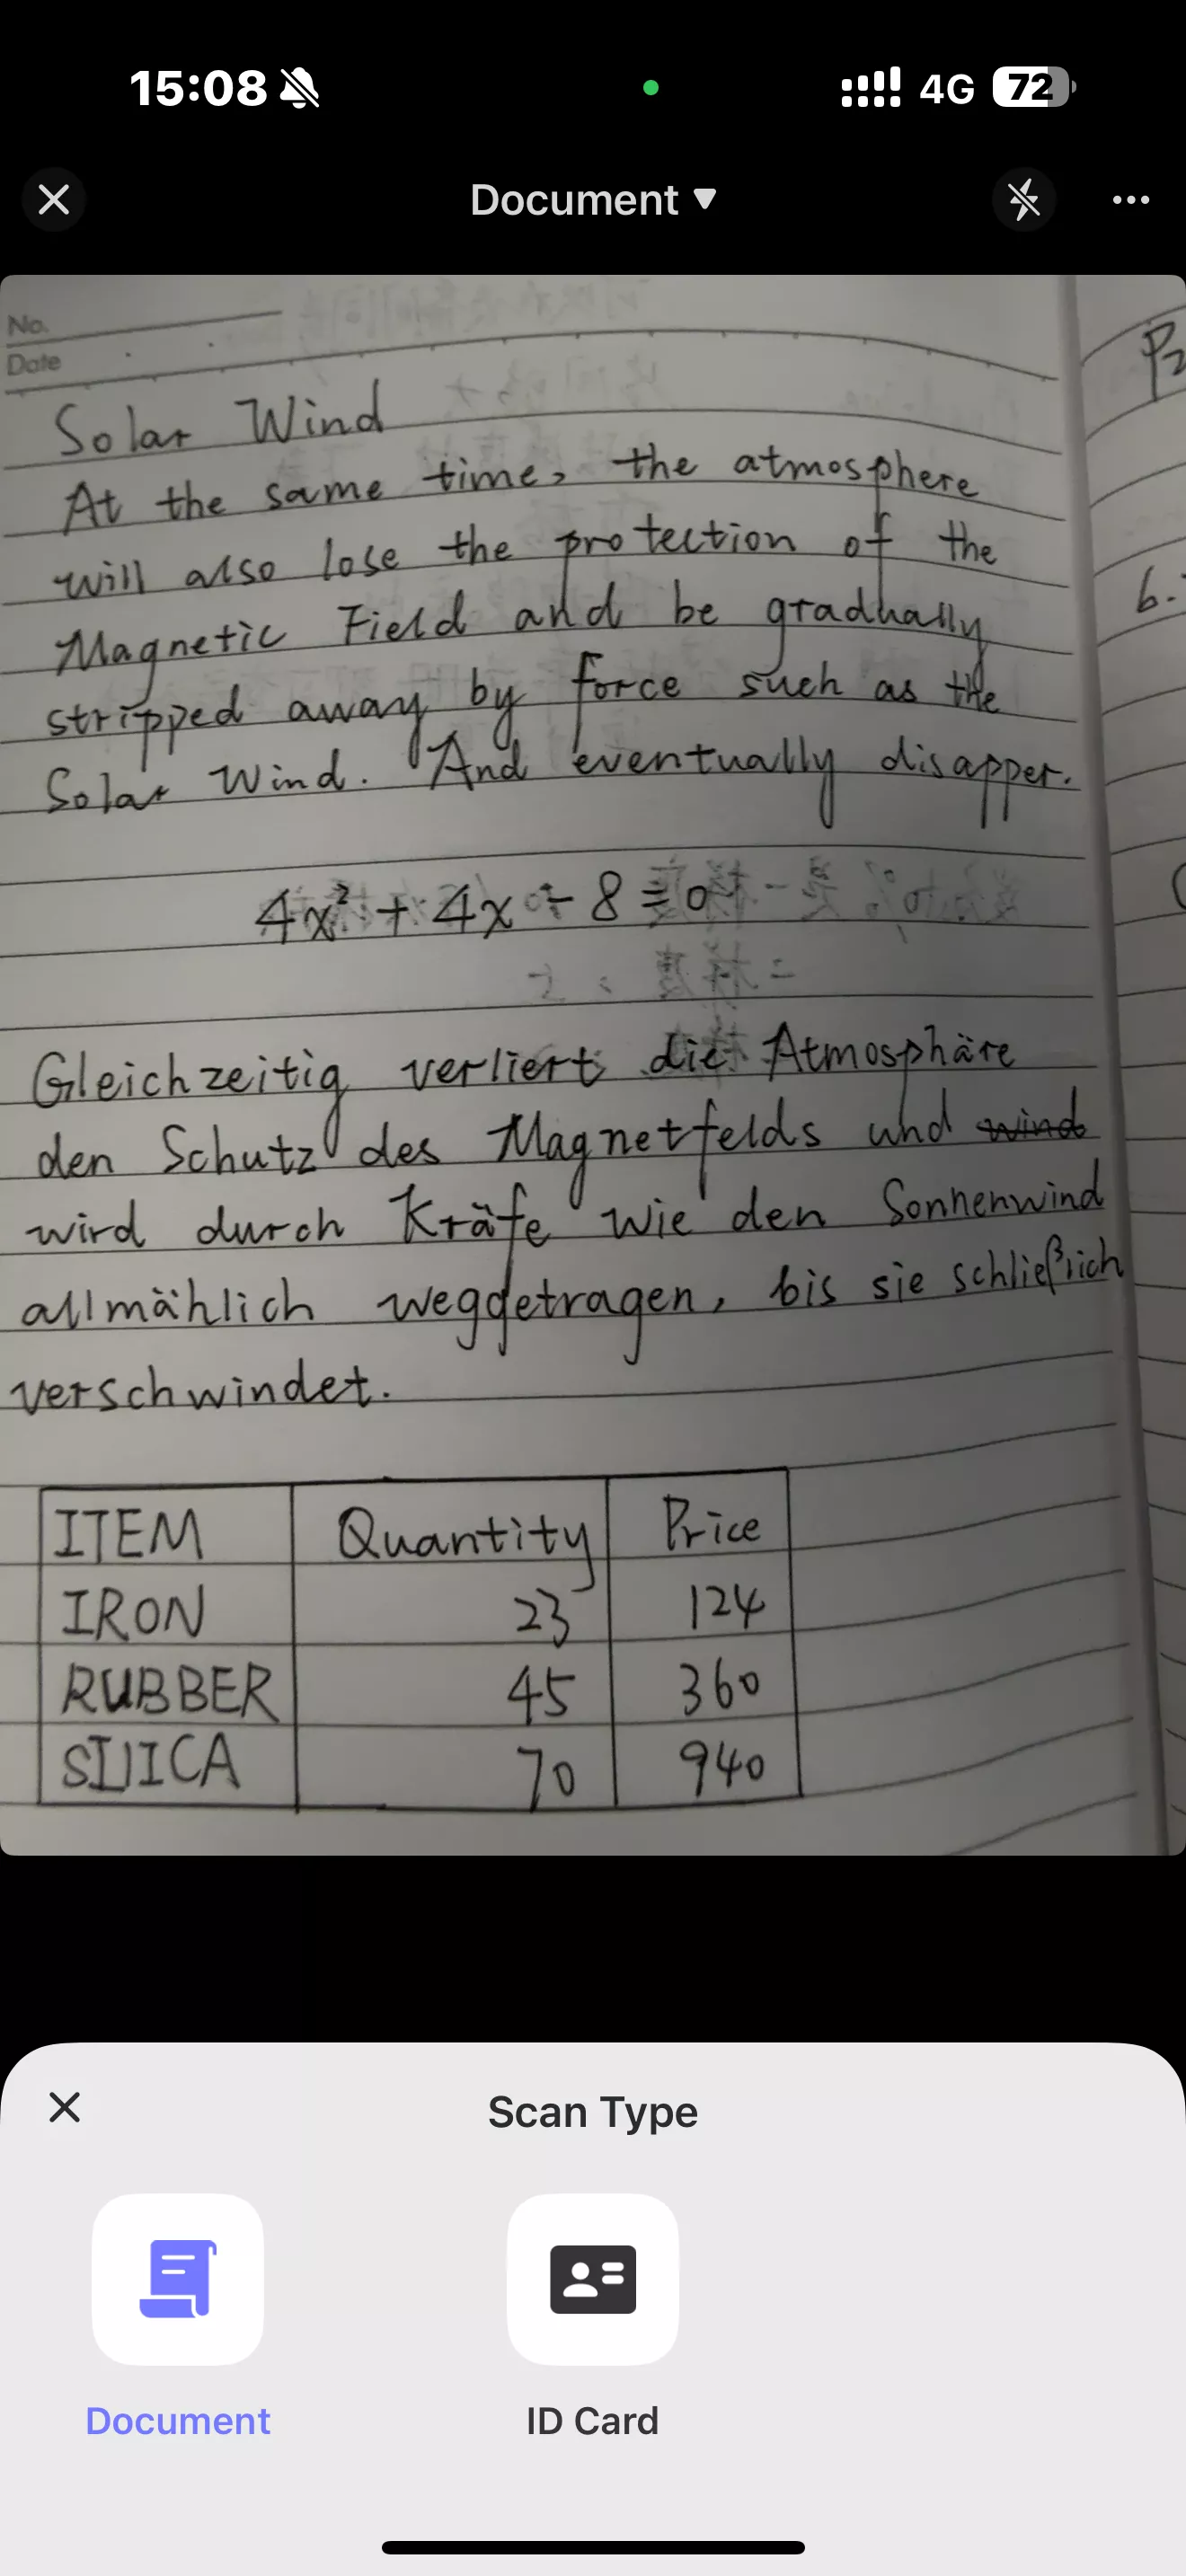 15:08 4G 72
Document
No.
Date
P2
Solar Wind
At the same time, the atmosphere
will also lose the protection of the
Magnetic Field and be gradually
stripped away by force such as the
Solar Wind. And eventually disapper.
6.
4x² + 4x - 8 = 0
Gleichzeitig verliert die Atmosphäre
den Schutz des Magnetfelds und wind
wird durch Kräfte wie den Sonnenwind
allmählich weggetragen, bis sie schließlich
verschwindet.
ITEM Quantity Price
IRON 23 124
RUBBER 45 360
SILICA 70 940
Scan Type
Document ID Card